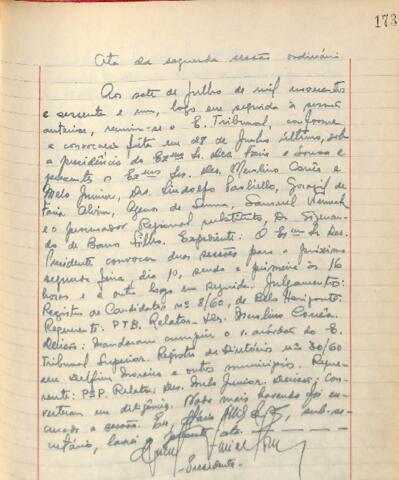 173
Ata da segunda sessão ordinária
Aos sete de Julho de mil novecentos
e sessenta e um, logo em seguida à sessão
anterior, reuniu-se o E. Tribunal, conforme
a convocação feita em 28 de Junho último, sob
a presidência do Exmo Sr. Des. Faria e Sousa e
presentes o Exmo Srs. Des. Merolino Corrêa e
Melo Junior, Drs. Lindolfo Paoliello, Gorazil de
Faria Alvim, Ageno de Senna, Samuel
e o procurador Regional substituto, Dr.
do de Barros Filho. Expediente: O Exmo Sr. Des.
Presidente convocou duas sessões para a próxima
segunda feira, dia 10, sendo a primeira às 16
horas e a outra logo em seguida. Julgamentos:
Registro de Candidatos nº 8/60, de Belo Horizonte.
Requerente: P.T.B. Relator: Des. Merolino Corrêa.
Decisão: Mandaram cumprir o v. acórdão do E.
Tribunal Superior. Registro de Diretório nº 30/60
em Delfim Moreira e outros municípios. Reque-
rente: P.S.P. Relator: Des. Melo Junior. Decisão: con-
verteram em diligência. Nada mais havendo foi en-
cerrada a sessão. Eu, sub-se-
cretário, lavrei a presente ata.
Presidente.